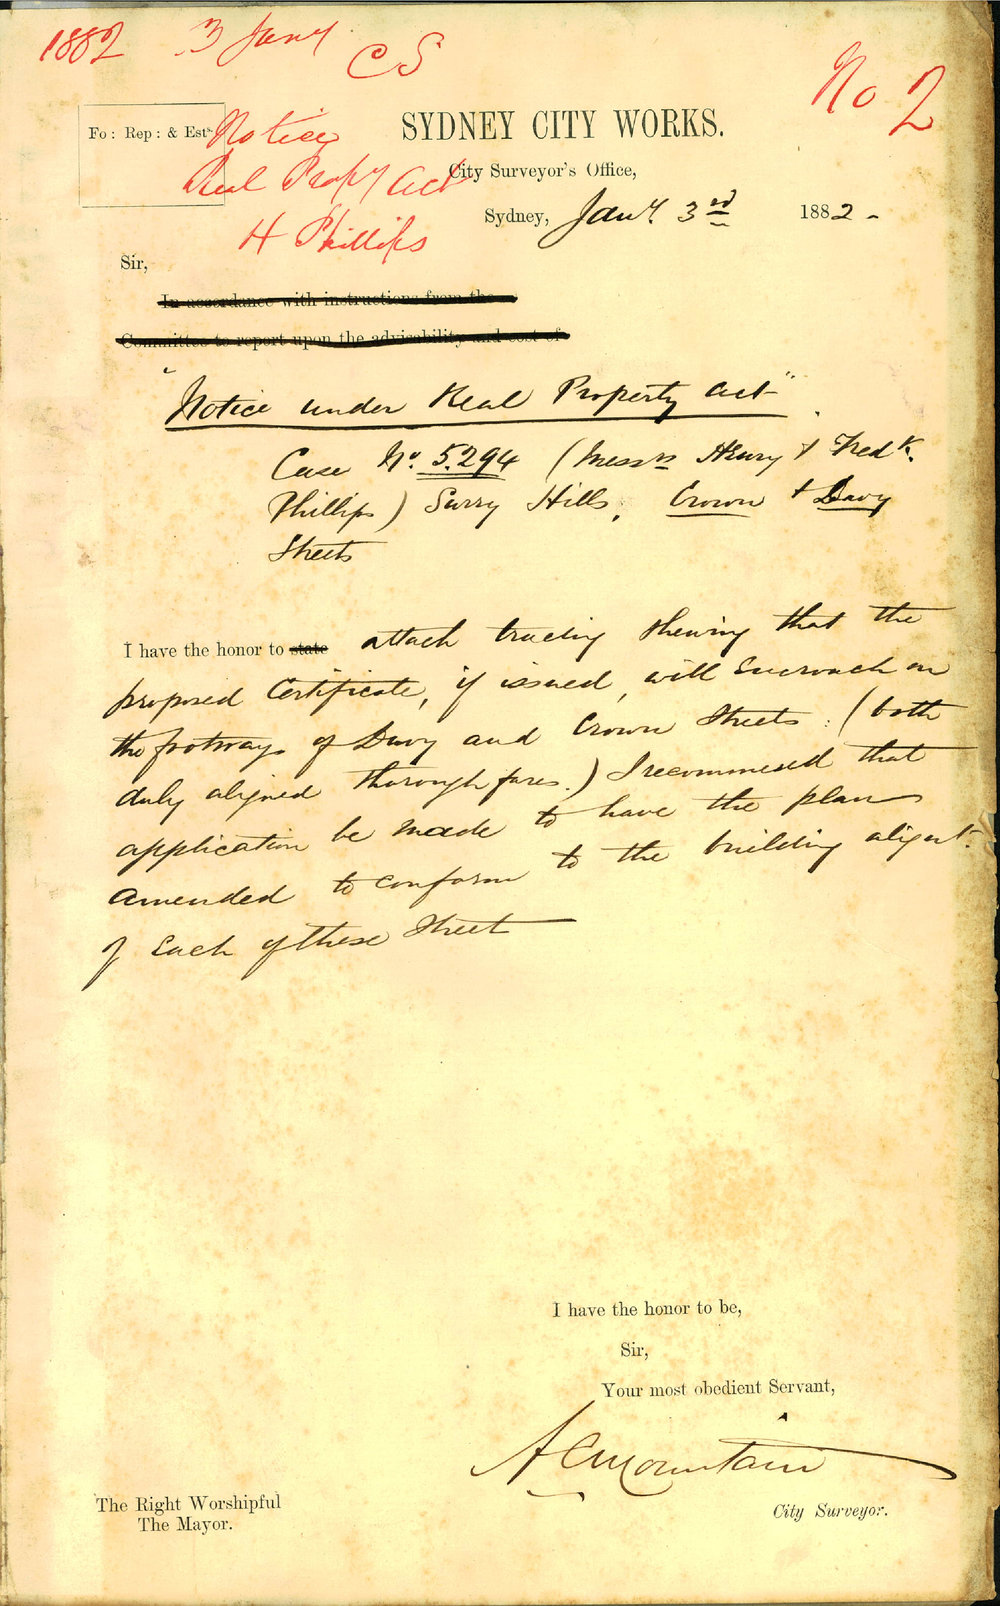 1882 3 Jany
CS
No 2
Fo: Rep: & Ests
Notice
Real Propy Act
H Phillips
SYDNEY CITY WORKS.
City Surveyor's Office,
Sydney, Jany. 3rd 1882-
Sir,
In accordance with instructions from the
Committee to report upon the advisability and cost of
"Notice under Real Property Act"
Case No. 5.294 (Messrs Henry & Fredk.
Phillips) Surry Hills, Crown & Davy
Streets
I have the honor to state attach tracing shewing that the
proposed Certificate, if issued, will encroach on
the footways of Davy and Crown Streets: (both
duly aligned thoroughfares.) I recommend that
application be made to have the plans
amended to conform to the building alignt.
of each of these Street
I have the honor to be,
Sir,
Your most obedient Servant,
A C Mountain
City Surveyor.
The Right Worshipful
The Mayor.